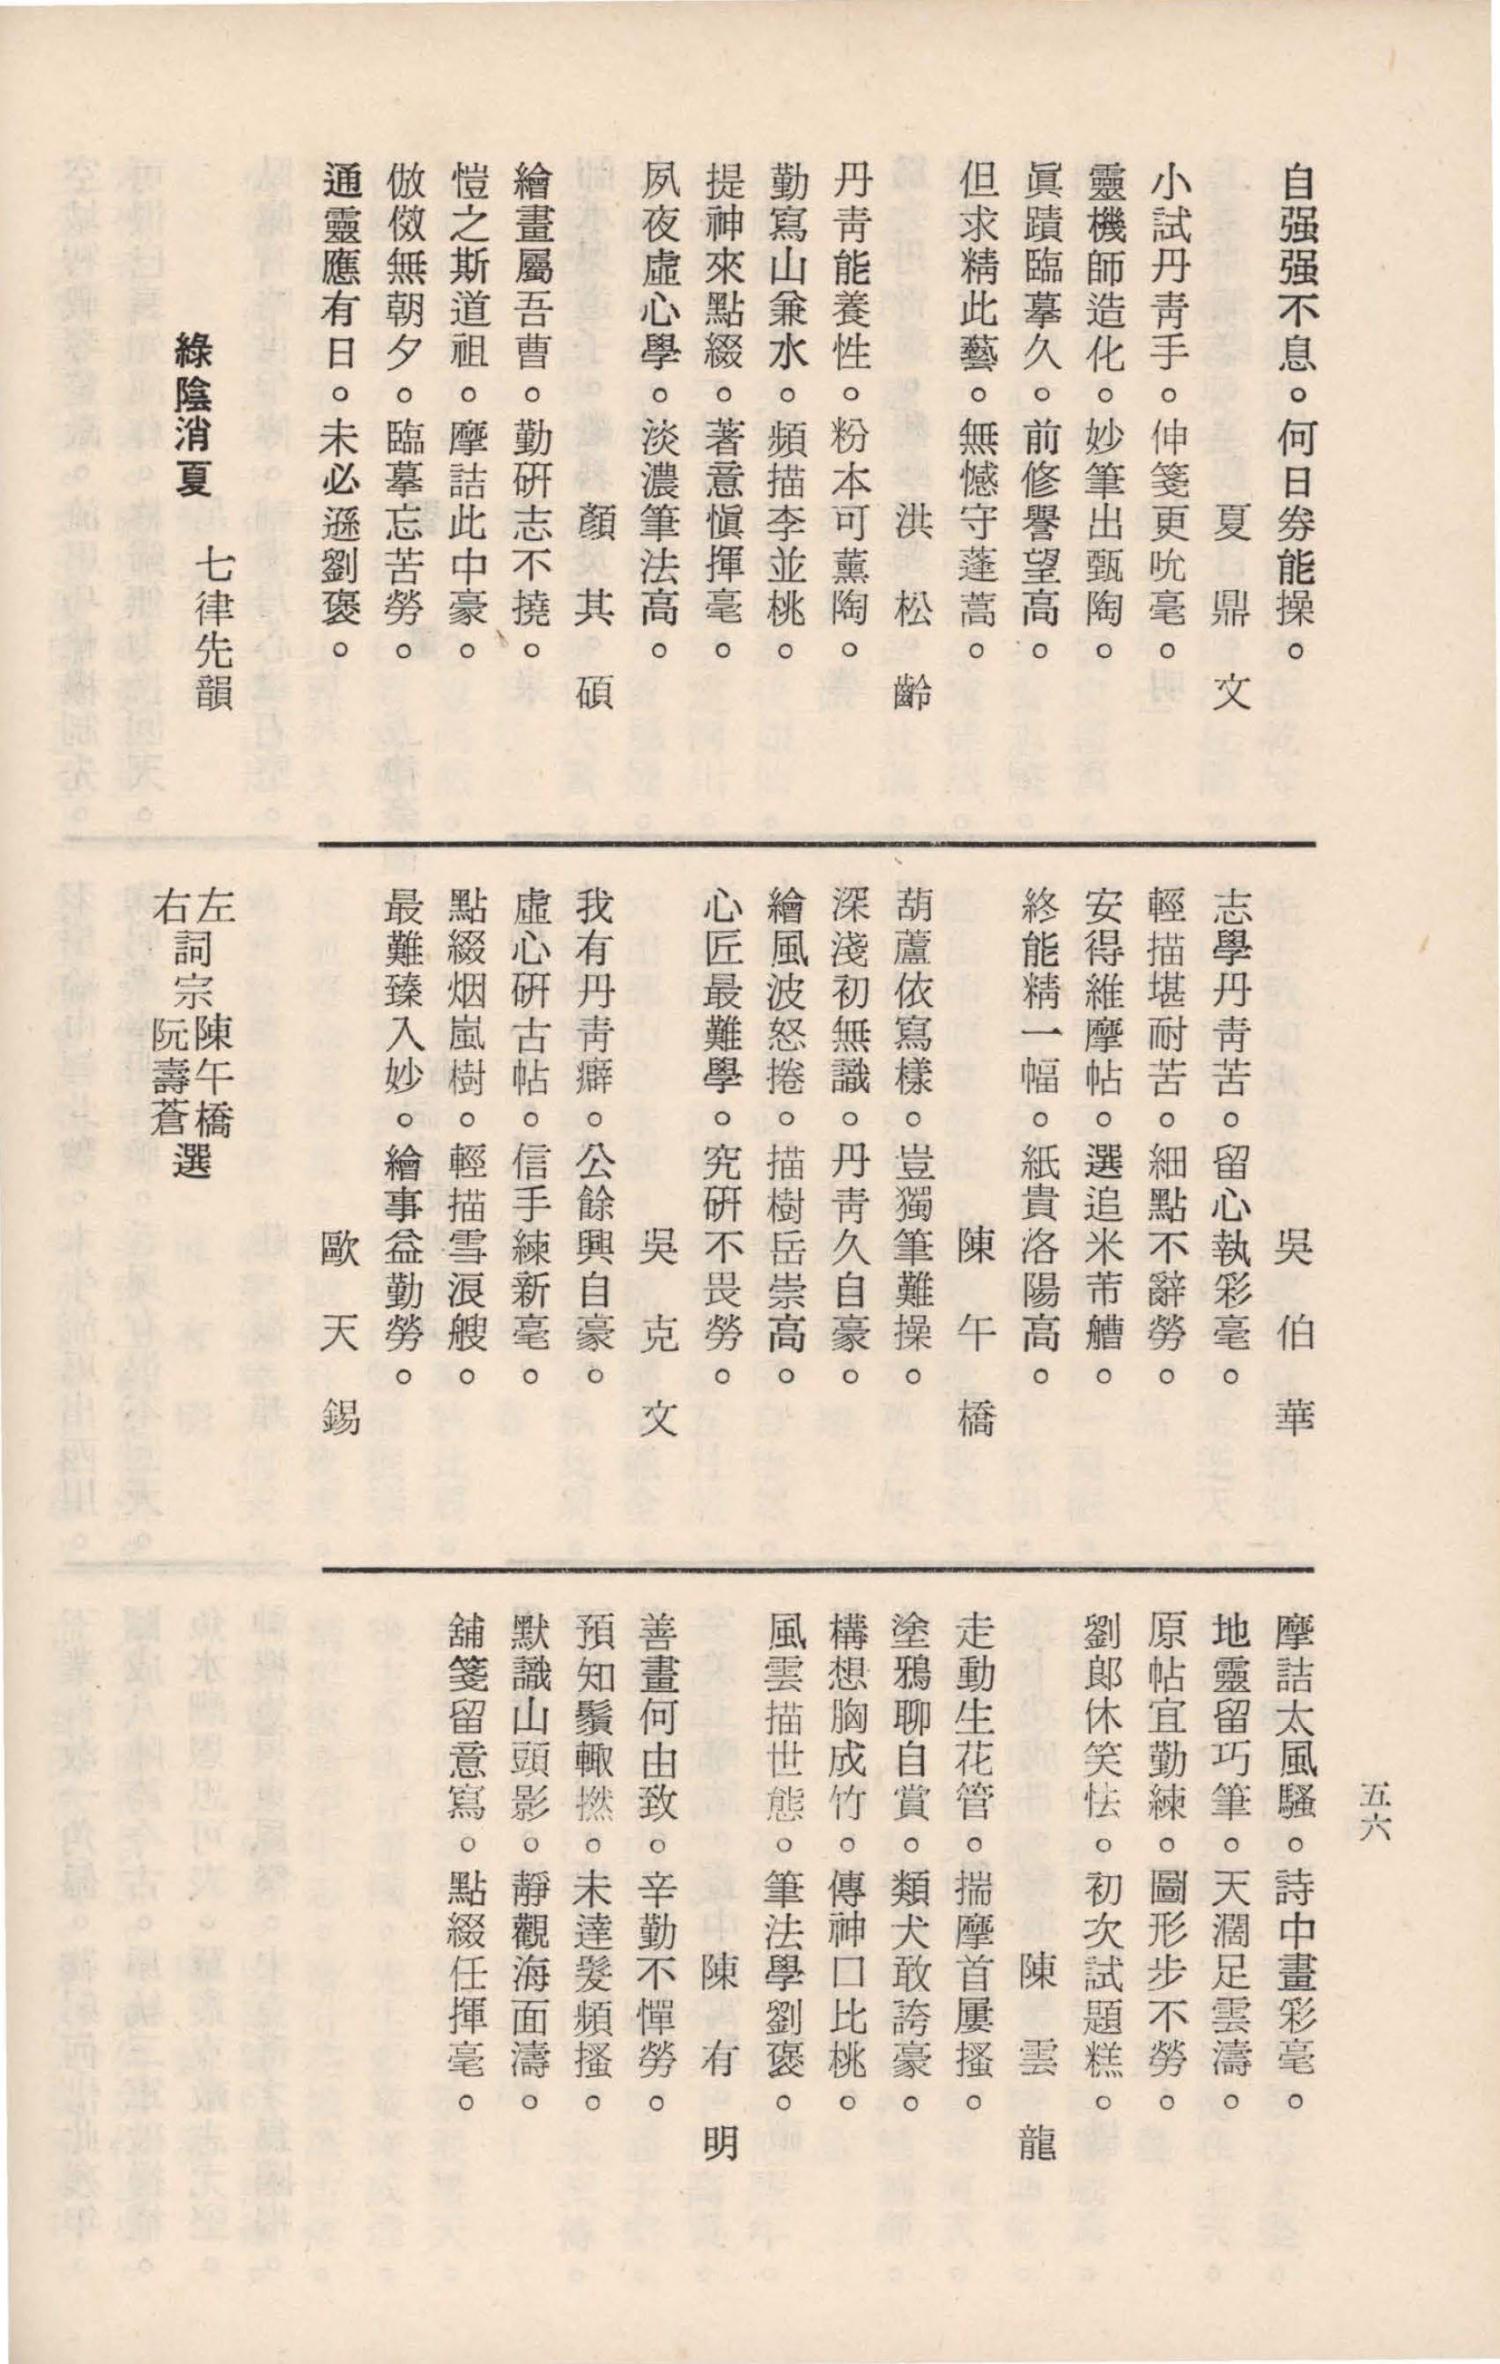 五六
自强强不息。何日券能操。
夏鼎文
小試丹靑手。伸箋更吮毫。
靈機師造化。妙筆出甄陶。
眞蹟臨摹久。前修譽望高。
但求精此藝。無憾守蓬蒿。
洪松齡
丹靑能養性。粉本可薰陶。
勤寫山兼水。頻描李並桃。
提神來點綴。著意愼揮毫。
夙夜虛心學。淡濃筆法高。
顏其碩
繪畫屬吾曹。勤硏志不撓。
愷之斯道祖。摩詰此中豪。
倣傚無朝夕。臨摹忘苦勞。
通靈應有日。未必遜劉褒。
吳伯華
志學丹靑苦。留心執彩毫。
輕描堪耐苦。細點不辭勞。
安得維摩帖。選追米芾艚。
終能精一幅。紙貴洛陽高。
陳午橋
葫蘆依寫樣。豈獨筆難操。
深淺初無識。丹靑久自豪。
繪風波怒捲。描樹岳崇高。
心匠最難學。究硏不畏勞。
吳克文
我有丹靑癖。公餘興自豪。
虛心硏古帖。信手練新毫。
點綴烟嵐樹。輕描雪浪艘。
最難臻入妙。繪事益勤勞。
歐天錫
摩詰太風騷。詩中畫彩毫。
地靈留巧筆。天濶足雲濤。
原帖宜勤練。圖形步不勞。
劉郎休笑怯。初次試題糕。
陳雲龍
走動生花管。揣摩首屢搔。
塗鴉聊自賞。類犬敢誇豪。
構想胸成竹。傳神口比桃。
風雲描世態。筆法學劉褒。
陳有明
善畫何由致。辛勤不憚勞。
預知鬚輙撚。未達髮頻搔。
默識山頭影。靜觀海面濤。
舖箋留意寫。點綴任揮毫。
綠陰消夏 七律先韻
左右詞宗 陳午橋 阮壽蒼 選